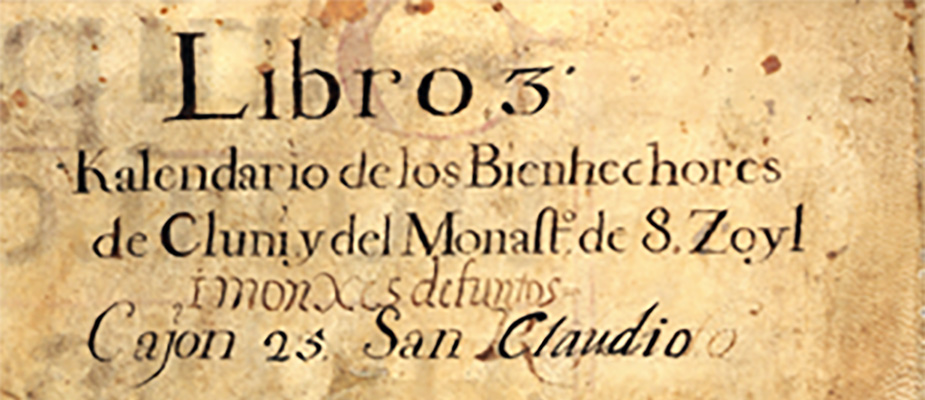 Libro 3·
Kalendario de los Bienhechores
de Cluni y del Monastº. de S. Zoyl
i monxes defuntos
Cajon 23. San Claudio